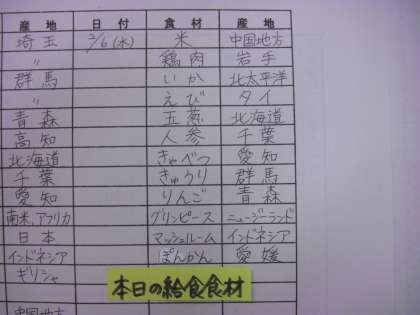 産地 日付 食材 産地
埼玉 2/6(水) 米 中国地方
〃 鶏肉 岩手
群馬 いか 北太平洋
〃 えび タイ
青森 玉葱 北海道
高知 人参 千葉
北海道 きゃべつ 愛知
千葉 きゅうり 群馬
愛知 りんご 青森
南米、アフリカ グリンピース ニュージーランド
日本 マッシュルーム インドネシア
インドネシア ぽんかん 愛媛
ギリシャ
本日の給食食材
中国地方